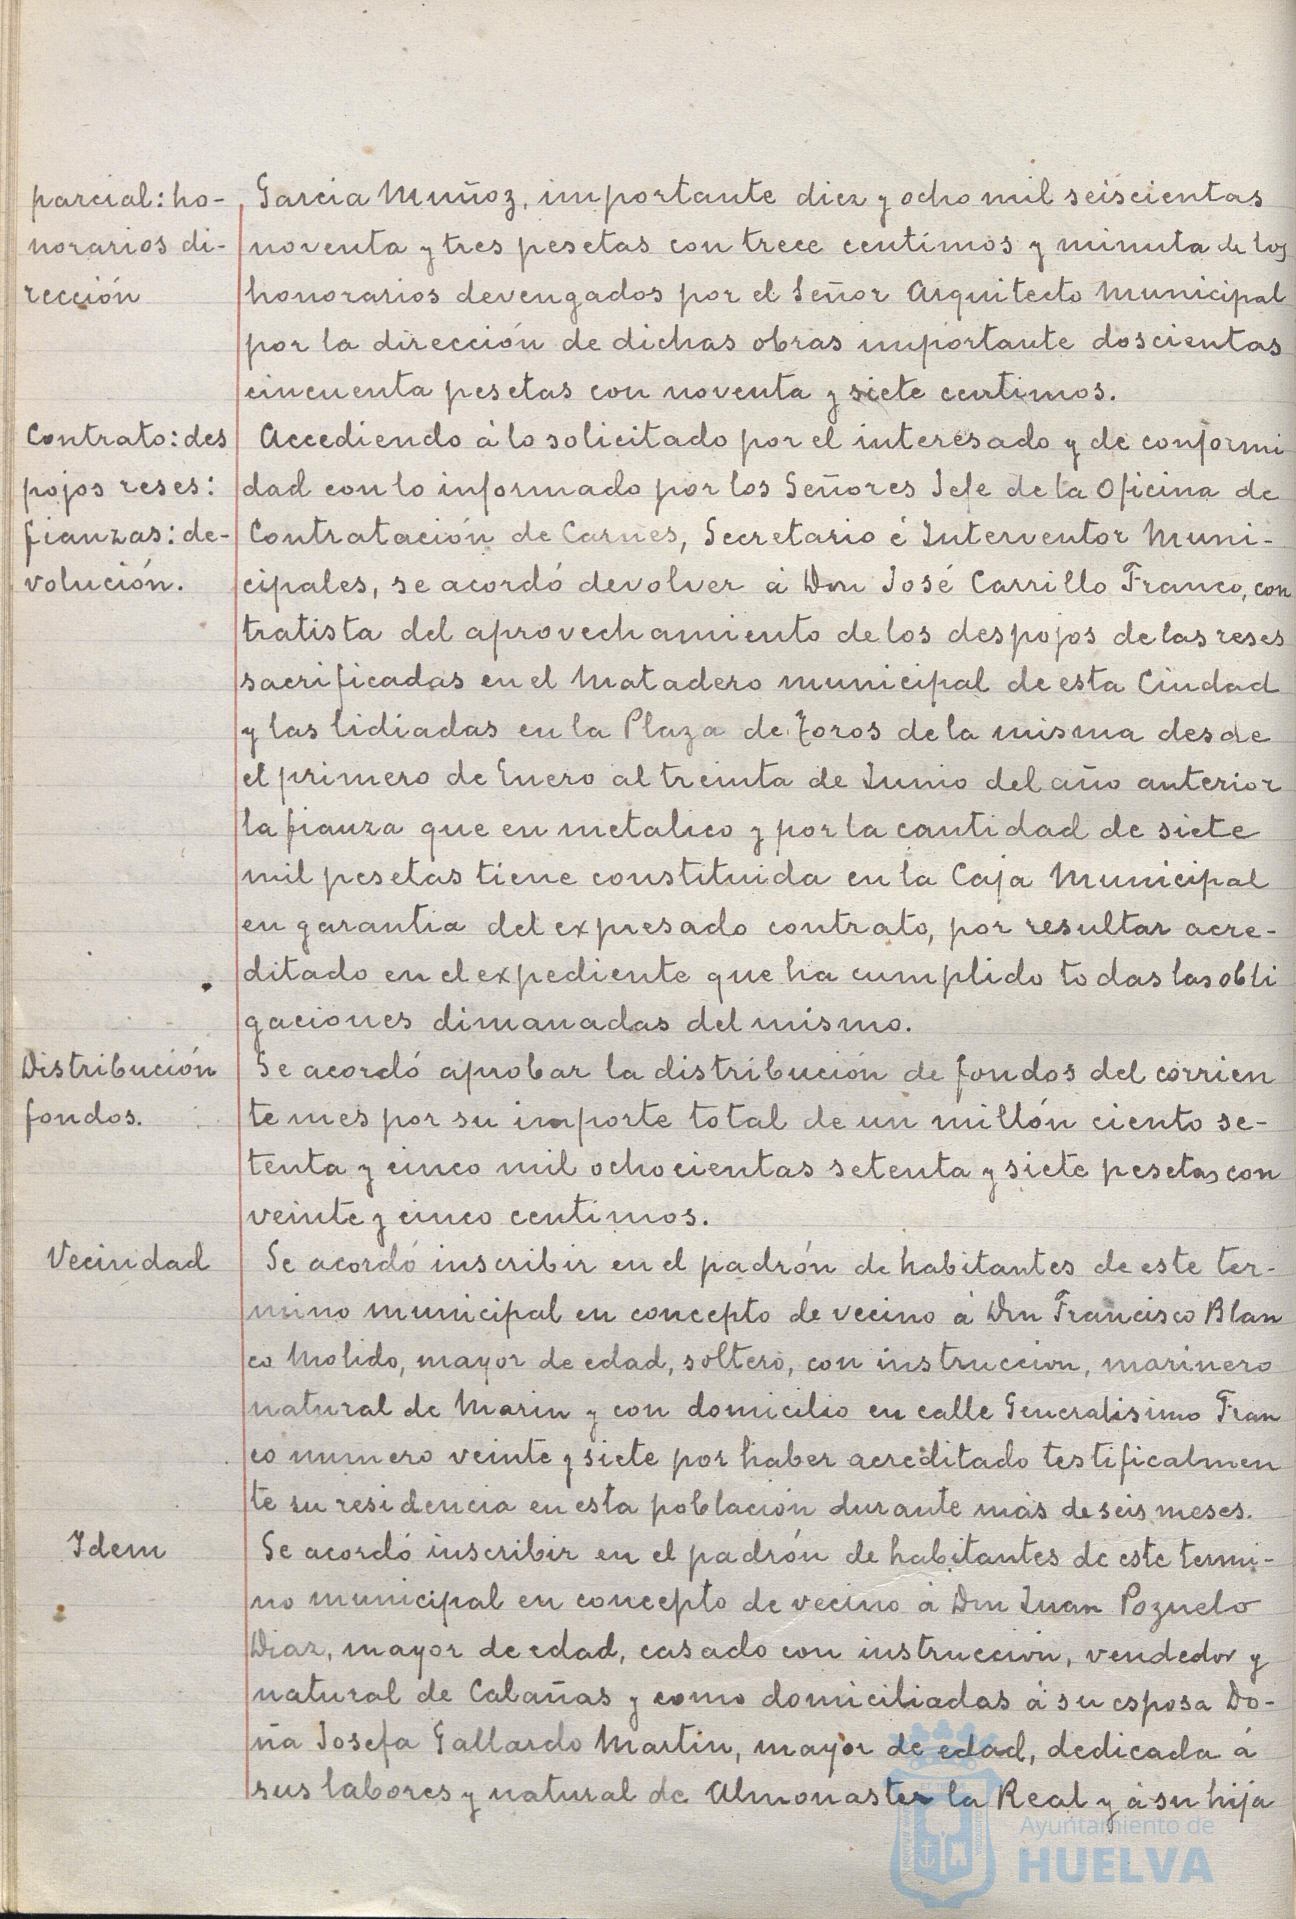 parcial: ho-
norarios di-
rección
Garcia Muñoz, importante diez y ocho mil seiscientas
noventa y tres pesetas con trece centimos y minuta de los
honorarios devengados por el Señor Arquitecto Municipal
por la dirección de dichas obras importante doscientas
cincuenta pesetas con noventa y siete centimos.
Contrato: des
pojos reses:
fianzas: de-
volución.
Accediendo á lo solicitado por el interesado y de conformi
dad con lo informado por los Señores Jefe de la Oficina de
Contratación de Carnes, Secretario é Interventor Muni-
cipales, se acordó devolver á Don José Carrillo Franco, con
tratista del aprovechamiento de los despojos de las reses
sacrificadas en el Matadero municipal de esta Ciudad
y las lidiadas en la Plaza de Toros de la misma desde
el primero de Enero al treinta de Junio del año anterior
la fianza que en metalico y por la cantidad de siete
mil pesetas tiene constituida en la Caja Municipal
en garantia del expresado contrato, por resultar acre-
ditado en el expediente que ha cumplido todas las obli
gaciones dimanadas del mismo.
Distribución
fondos.
Se acordó aprobar la distribución de fondos del corrien
te mes por su importe total de un millón ciento se-
tenta y cinco mil ochocientas setenta y siete pesetas con
veinte y cinco centimos.
Vecindad
Se acordó inscribir en el padrón de habitantes de este ter-
mino municipal en concepto de vecino á Don Francisco Blan
co Molido, mayor de edad, soltero, con instruccion, marinero
natural de Marin y con domicilio en calle Generalisimo Fran
co numero veinte y siete por haber acreditado testificalmen
te su residencia en esta población durante más de seis meses.
Idem
Se acordó inscribir en el padrón de habitantes de este termi-
no municipal en concepto de vecino á Don Juan Pozuelo
Diaz, mayor de edad, casado con instruccion, vendedor y
natural de Calañas y como domiciliadas á su esposa Do-
ña Josefa Gallardo Martin, mayor de edad, dedicada á
sus labores y natural de Almonaster la Real y á su hija
Ayuntamiento de
HUELVA